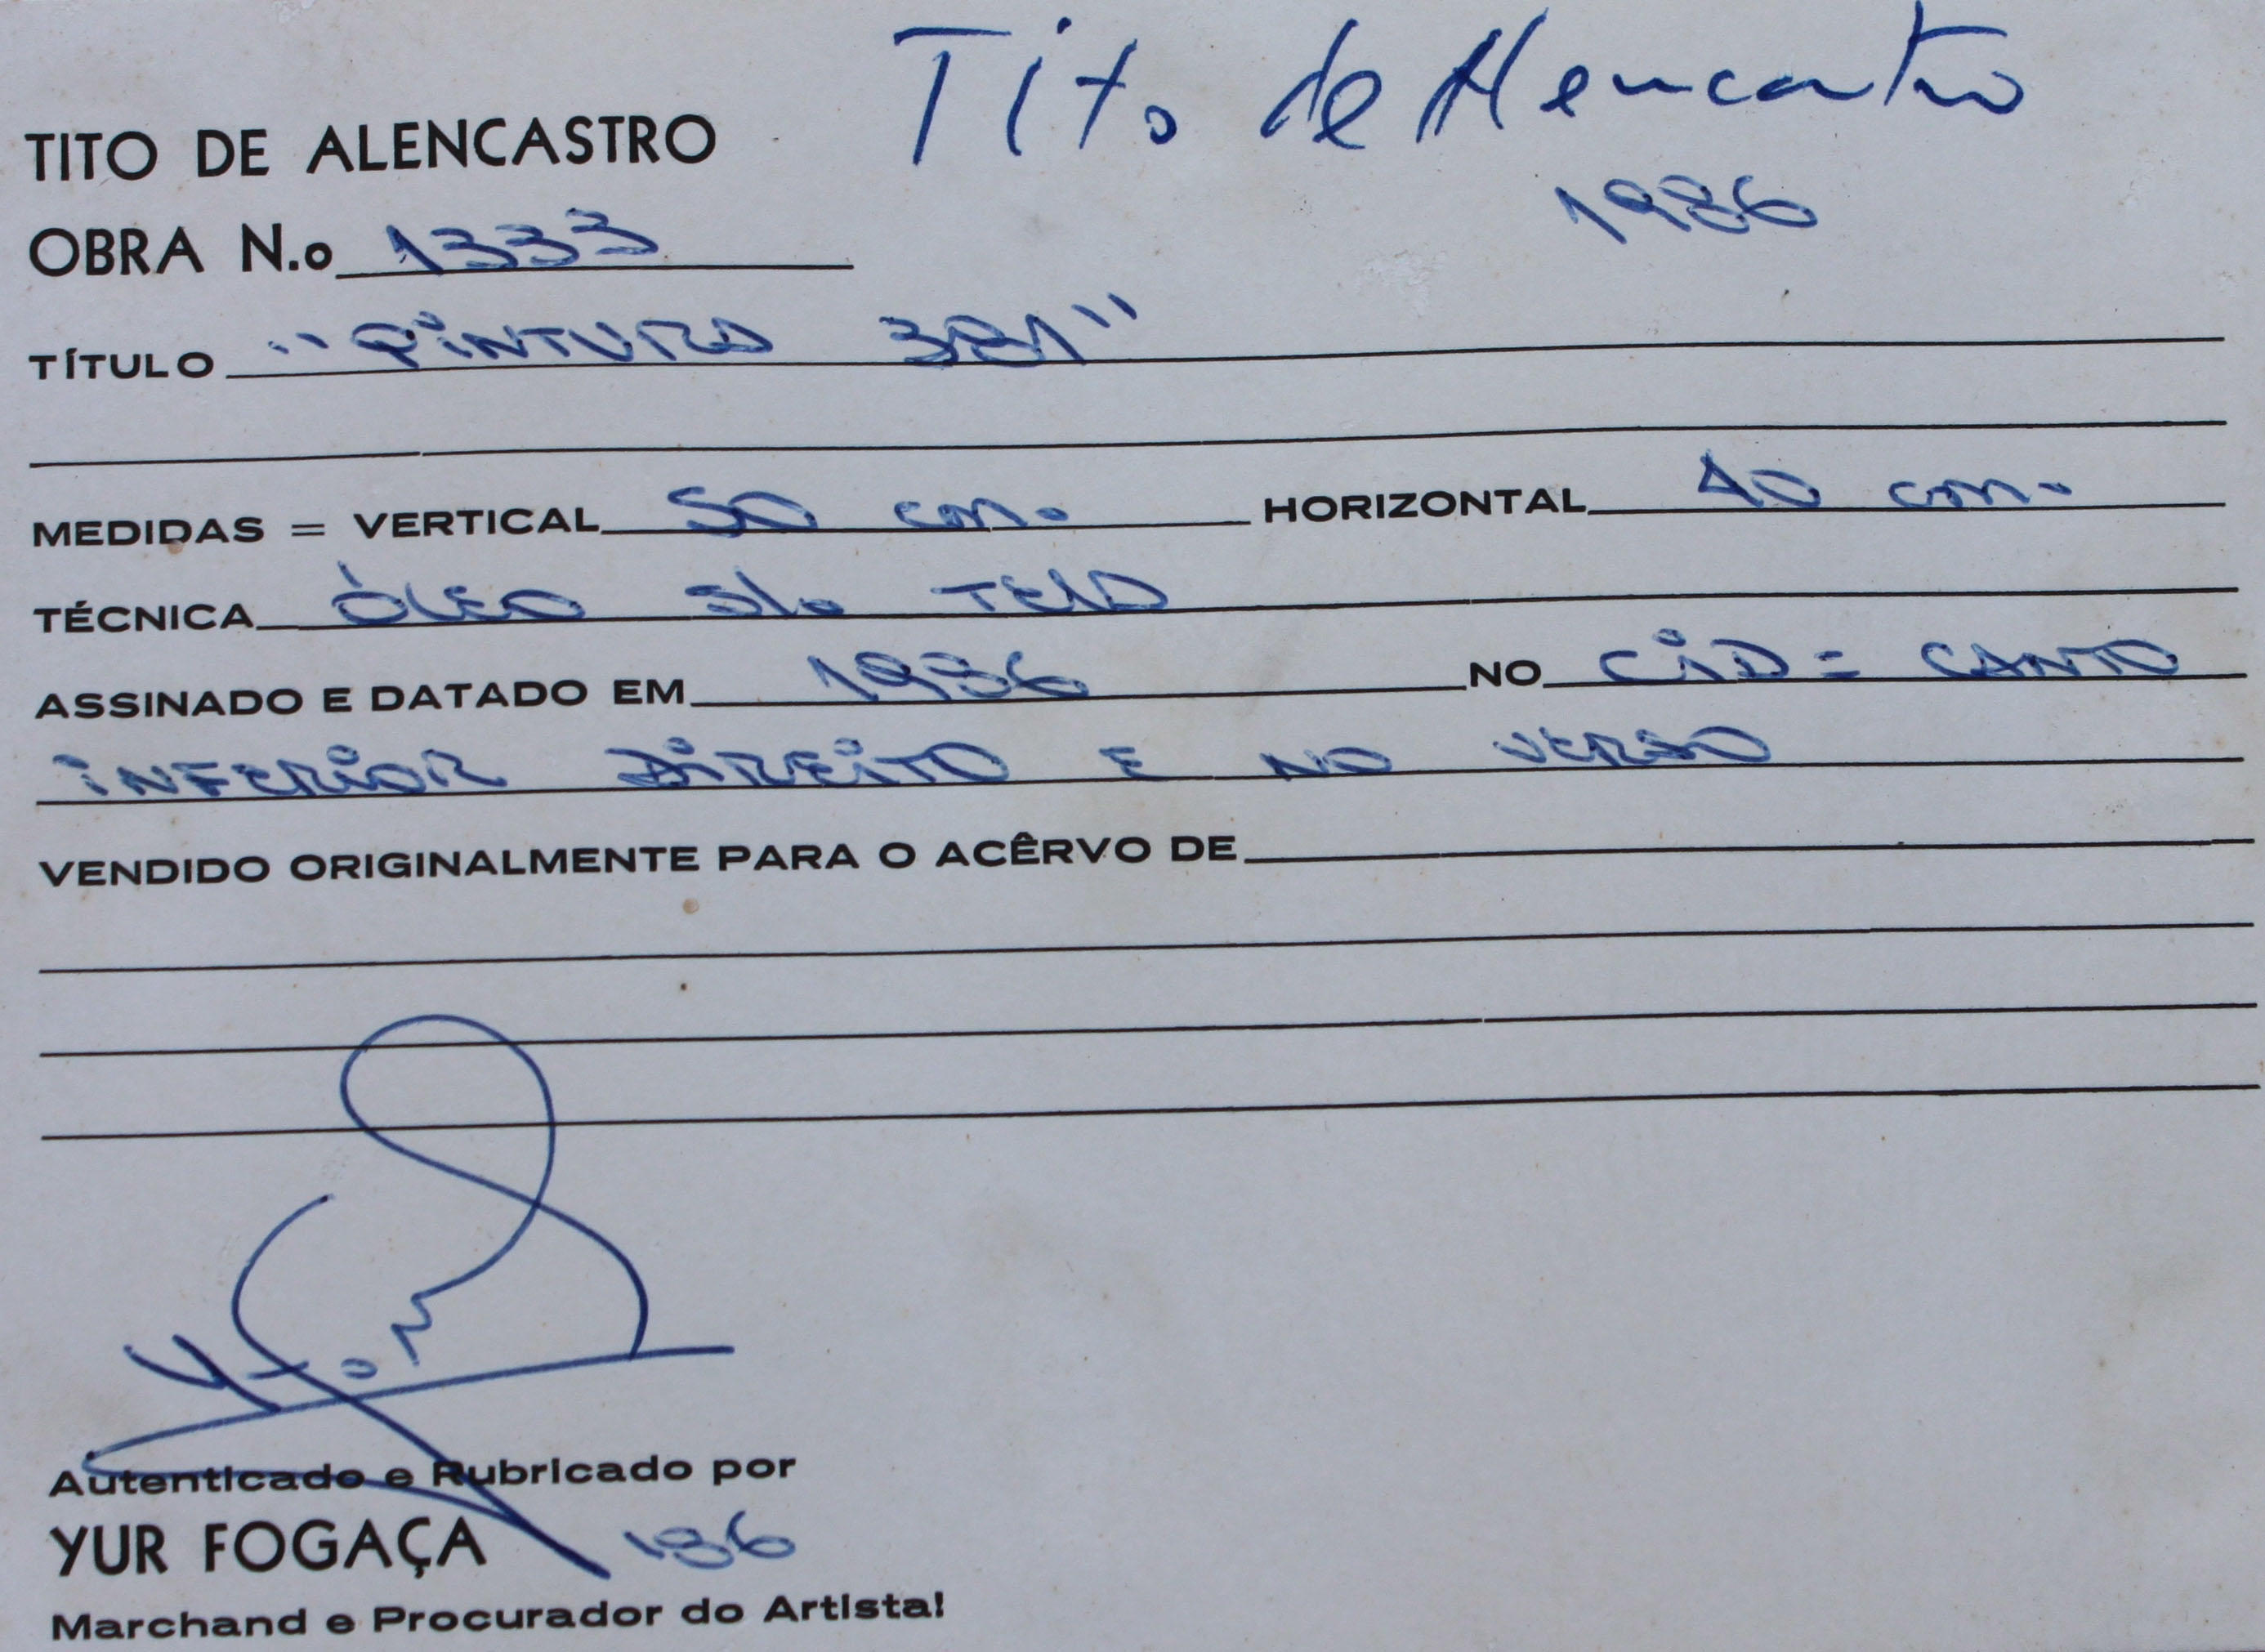 Tito de Alencastro
TITO DE ALENCASTRO
1986
OBRA N.o 1333
TÍTULO "PINTURA 381"
MEDIDAS = VERTICAL 50 cm. HORIZONTAL 40 cm.
TÉCNICA ÓLEO S/. TELA
ASSINADO E DATADO EM 1986 NO CID = CANTO
INFERIOR DIREITO E NO VERSO
VENDIDO ORIGINALMENTE PARA O ACÊRVO DE
Autenticado e Rubricado por
YUR FOGAÇA '86
Marchand e Procurador do Artista!